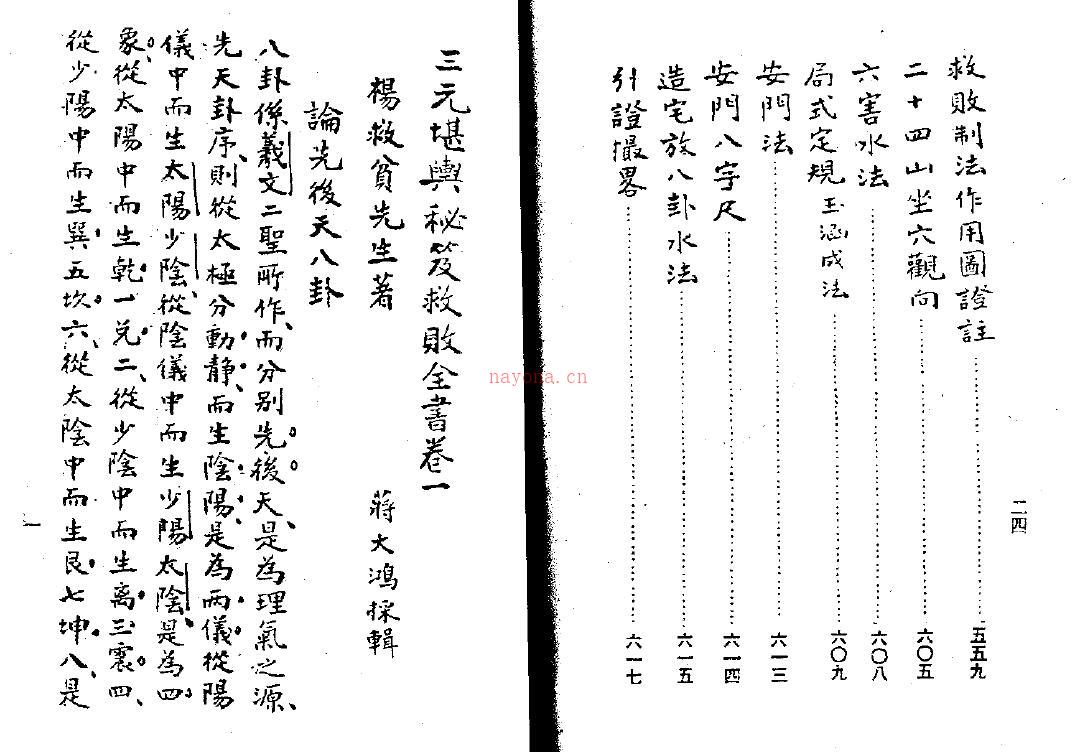 救敗制法作用圖證註……五五九
二十四山坐穴觀向……六〇五
六害水法……六〇八
局式定規玉涵成法……六〇九
安門法……六一三
安門八字尺……六一四
造宅放八卦水法……六一五
引證撮畧……六一七
二四
三元堪輿秘笈救敗全書卷一
楊救貧先生著 蔣大鴻採輯
論先後天八卦
八卦係羲文二聖所作、而分別先後天、是為理氣之源、
先天卦序、則從太極分動靜、而生陰陽、是為兩儀、從陽
儀中而生太陽少陰、從陰儀中而生少陽太陰、是為四
象、從太陽中而生乾一、兌二、從少陰中而生離三、震四、
從少陽中而生巽五、坎六、從太陰中而生艮七坤八、是
一
nayona.cn